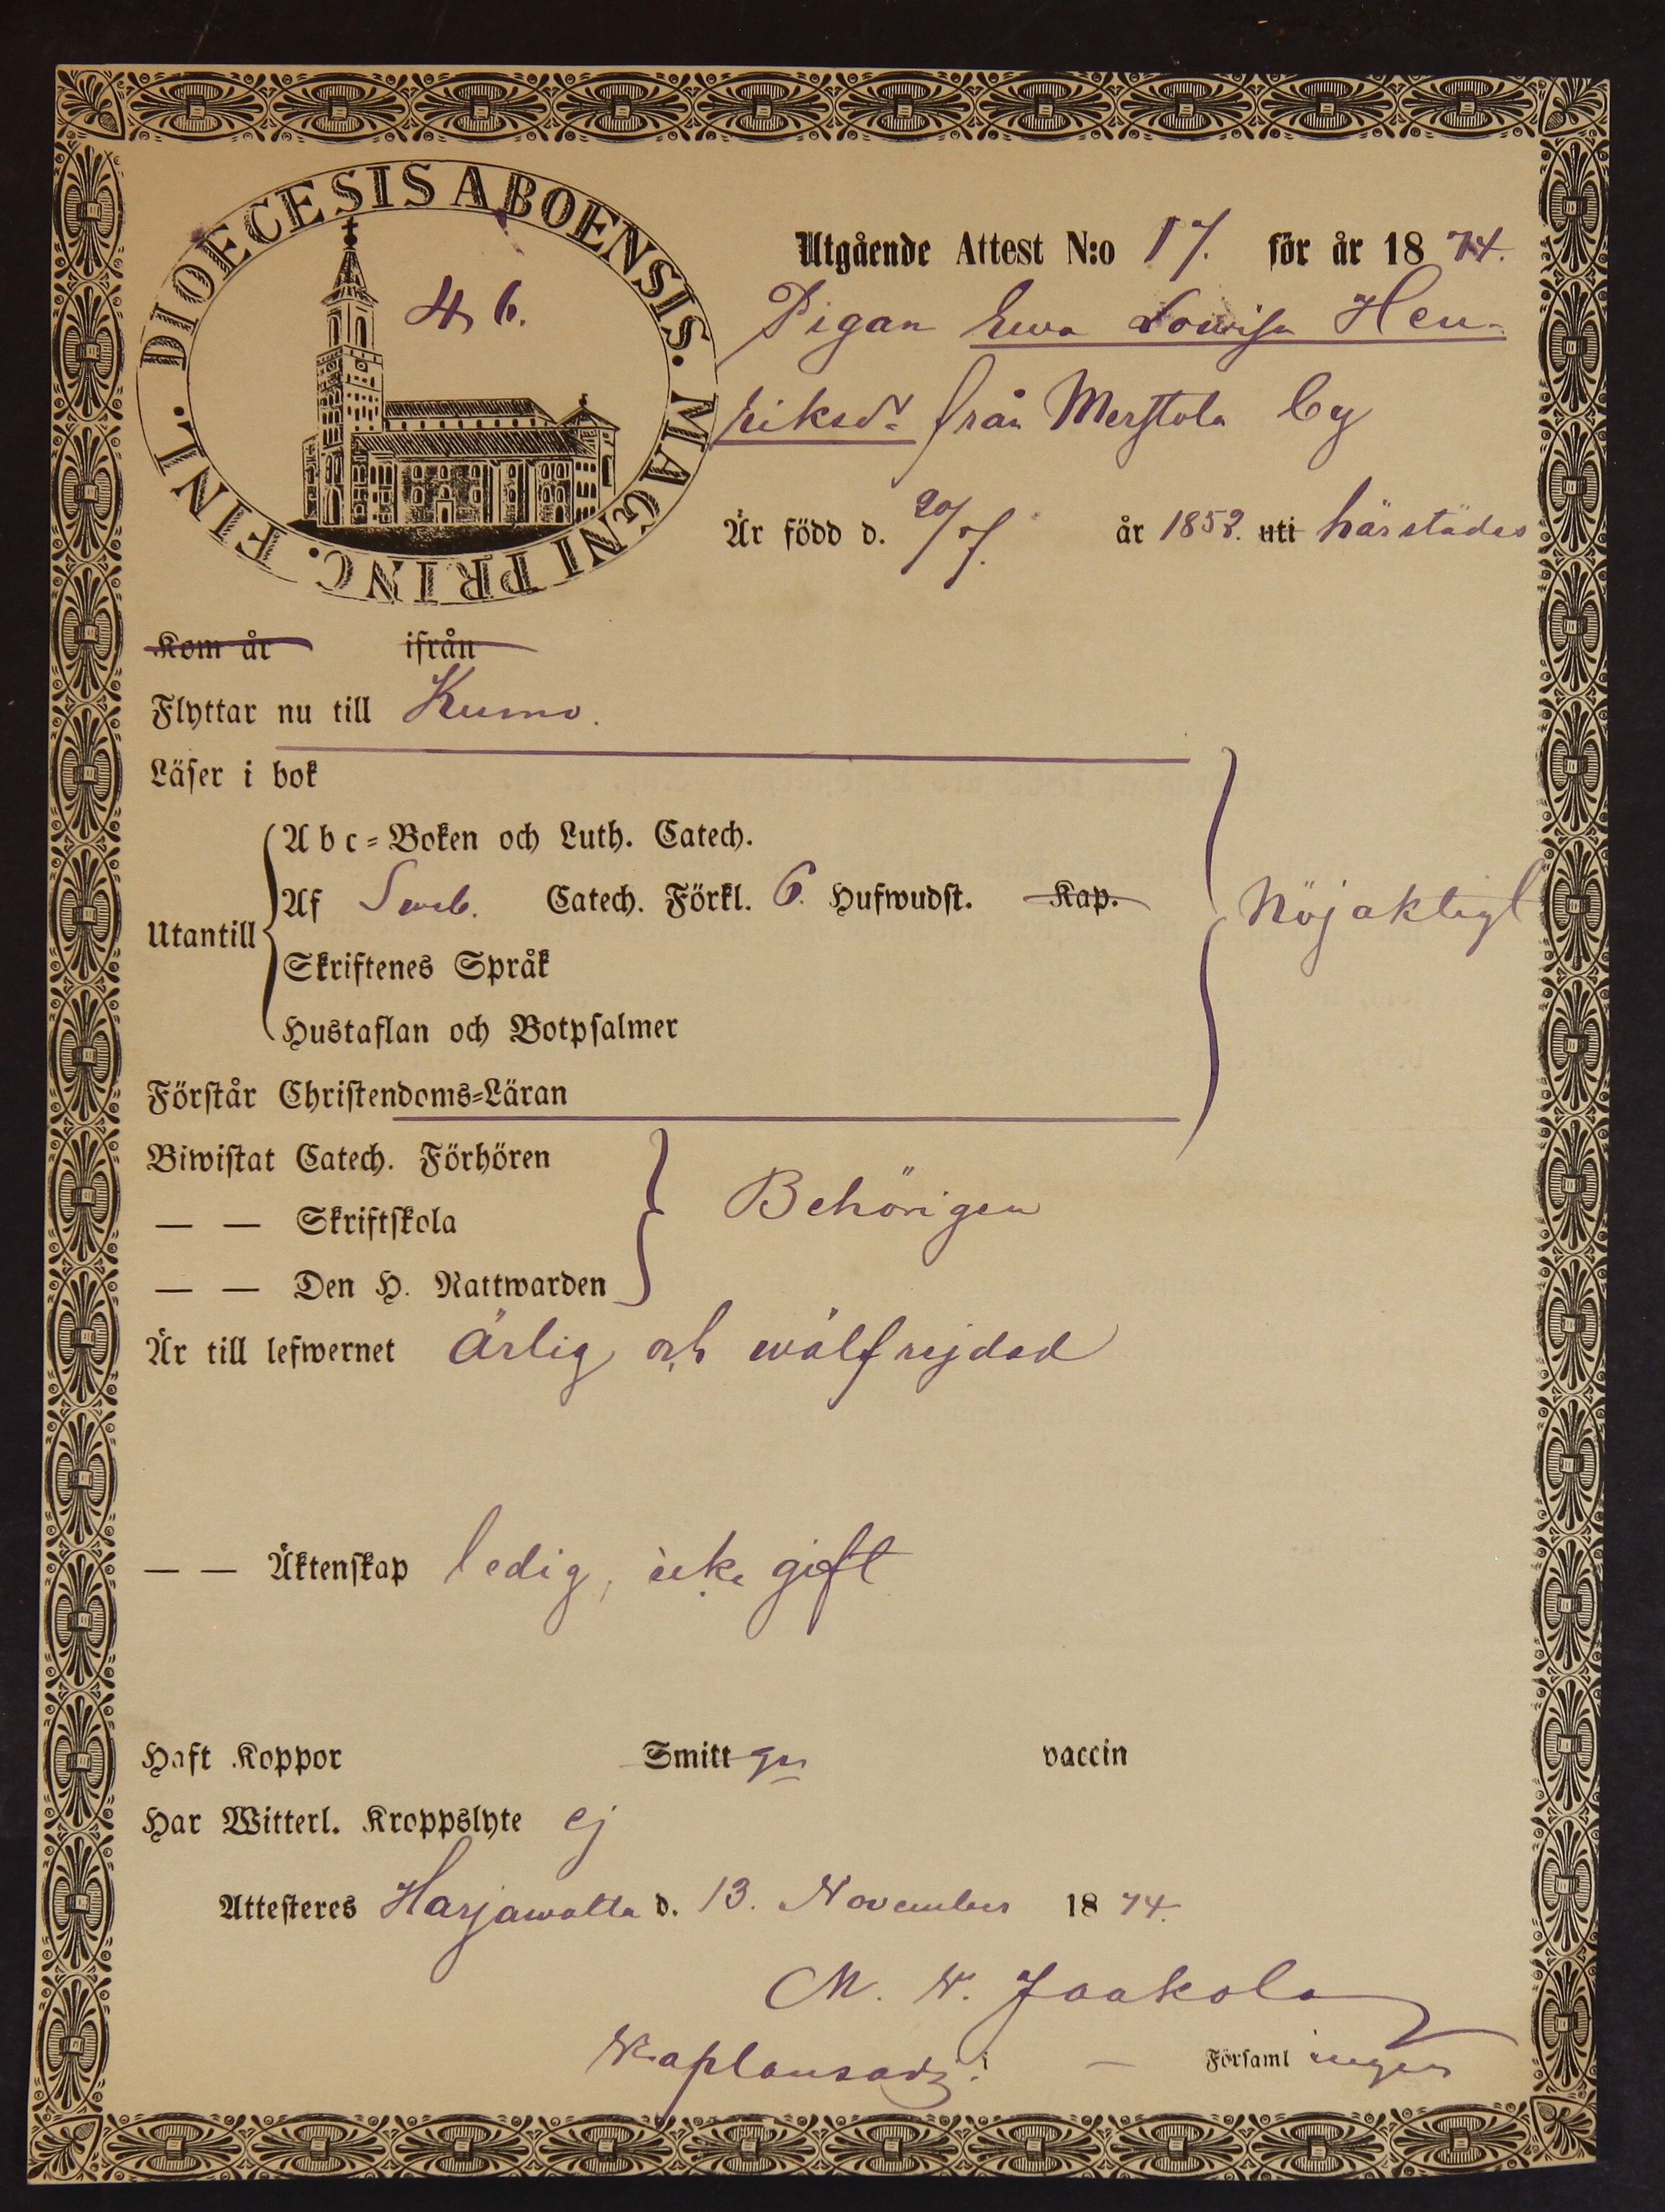 DIOECESIS ABOENSIS. MAGNI PRINC. FINL.
46.
Utgående Attest N:o 17. för år 1874.
Pigan Ewa Lowisa Hen-
riksdr från Merstola by
Är född d. 20/7. år 1852. uti härstädes
Kom år ifrån
Flyttar nu till Kumo.
Läser i bok
Abc-Boken och Luth. Catech.
Utantill
Af Sweb. Catech. Förkl. 6. Hufwudst. Kap.
Nöjaktigt
Skriftenes Språk
Hustaflan och Botpsalmer
Förstår Christendoms-Läran
Biwistat Catech. Förhören
— — Skriftskola
Behörigen
— — Den H. Nattwarden
Är till lefwernet ärlig och wälfrejdad
— — Äktenskap ledig, icke gift
Haft Koppor Smitt vaccin
Har Witterl. Kroppslyte ej
Attesteres Harjawalta d. 13. November 1874.
M. W. Jaakola
Kaplansadj. i — Församlingen